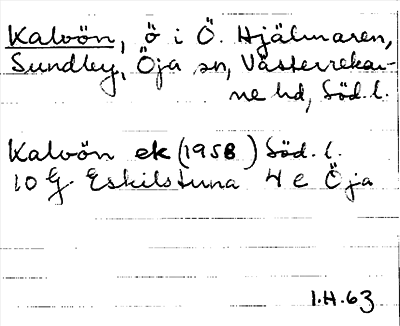 Kalvön, ö i Ö. Hjälmaren,
Sundby, Öja sn, Västerrekar-
ne hd, Söd. l.
Kalvön ek (1958) Söd. l.
10 G Eskilstuna 4 e Öja
1.H.63